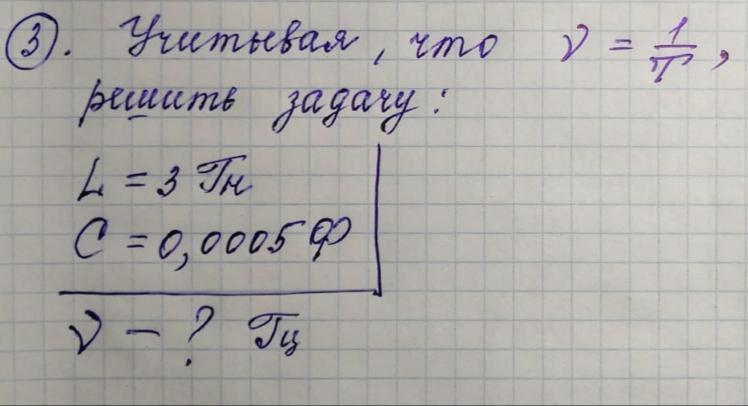 3. Учитывая, что ν = 1/T,
решить задачу:
L = 3 Гн
C = 0,0005 Ф
ν – ? Гц